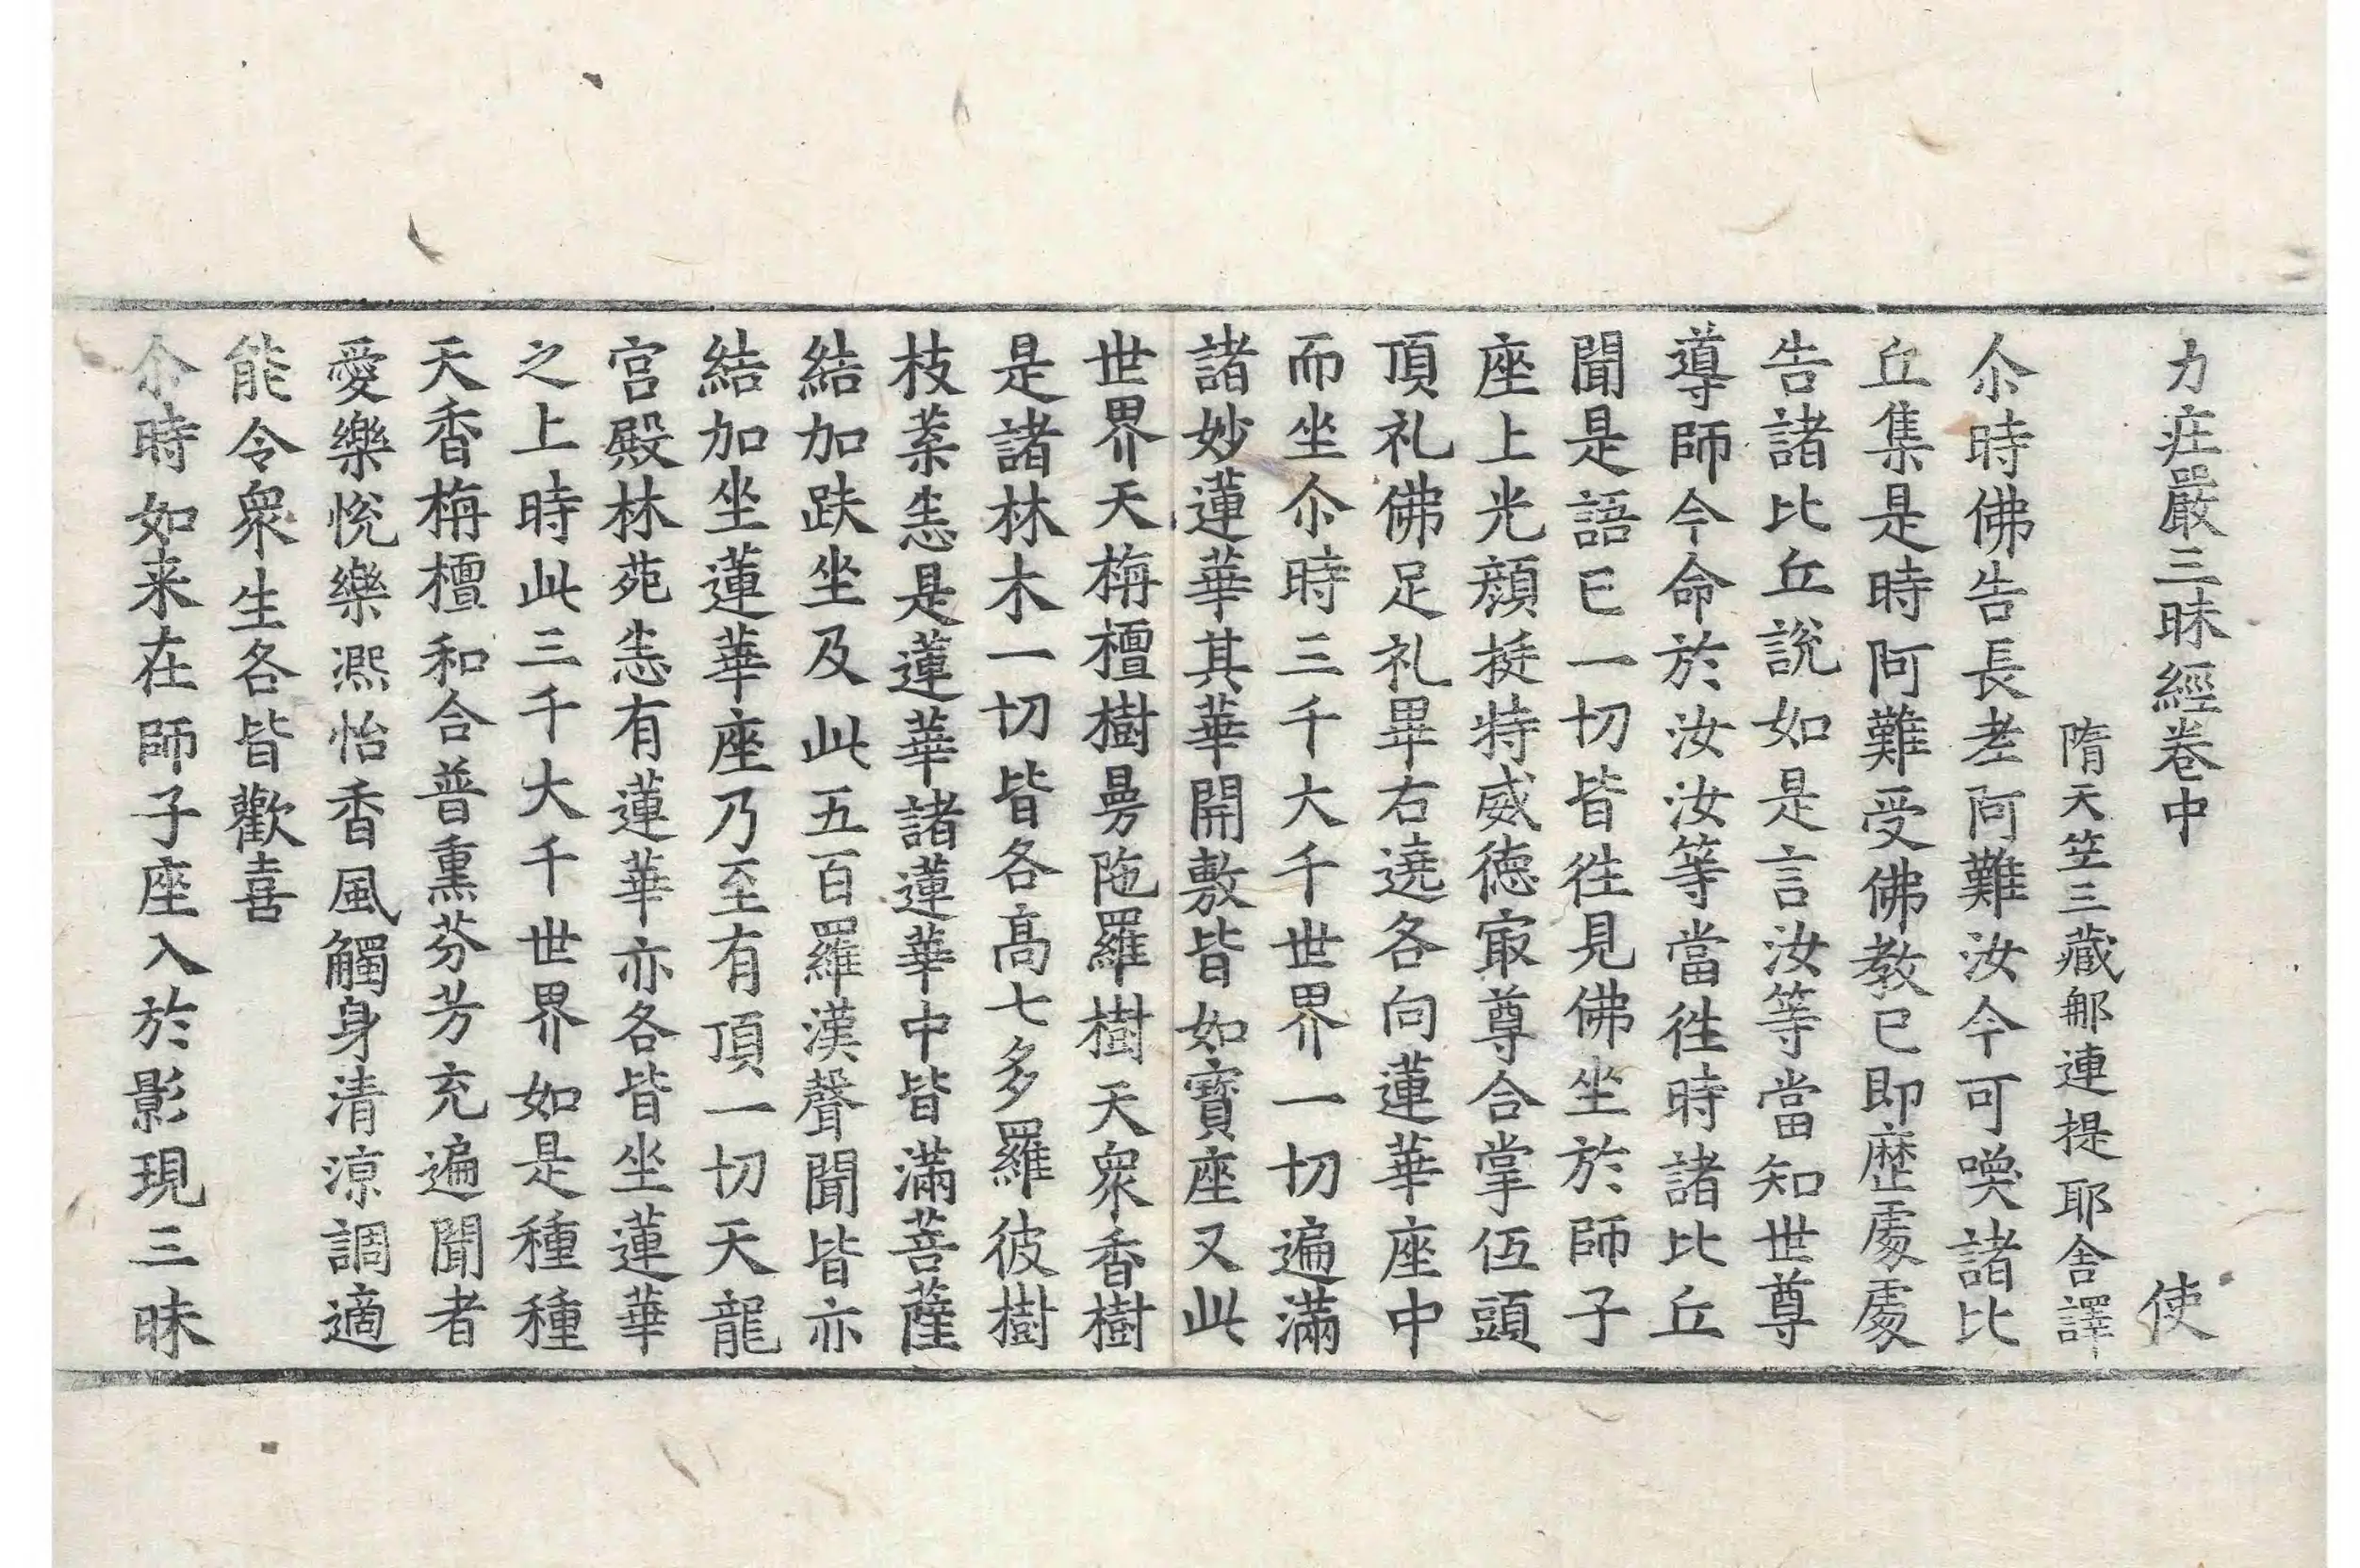 力庄嚴三昧經卷中 使
隋天竺三藏那連提耶舍譯
尒時佛告長老阿難汝今可喚諸比
丘集是時阿難受佛教已即歷處處
告諸比丘說如是言汝等當知世尊
導師今命於汝汝等當往時諸比丘
聞是語已一切皆往見佛坐於師子
座上光顏挺特威德㝡尊合掌伍頭
頂礼佛足礼畢右遶各向蓮華座中
而坐尒時三千大千世界一切遍滿
諸妙蓮華其華開敷皆如寶座又此
世界天栴檀樹曼陁羅樹天衆香樹
是諸林木一切皆各高七多羅彼樹
枝葉悉是蓮華諸蓮華中皆滿菩薩
結加趺坐及此五百羅漢聲聞皆亦
結加坐蓮華座乃至有頂一切天龍
宮殿林苑悉有蓮華亦各皆坐蓮華
之上時此三千大千世界如是種種
天香栴檀和合普熏芬芳充遍聞者
愛樂悅樂凞怡香風觸身清涼調適
能令衆生各皆歡喜
尒時如来在師子座入於影現三昧